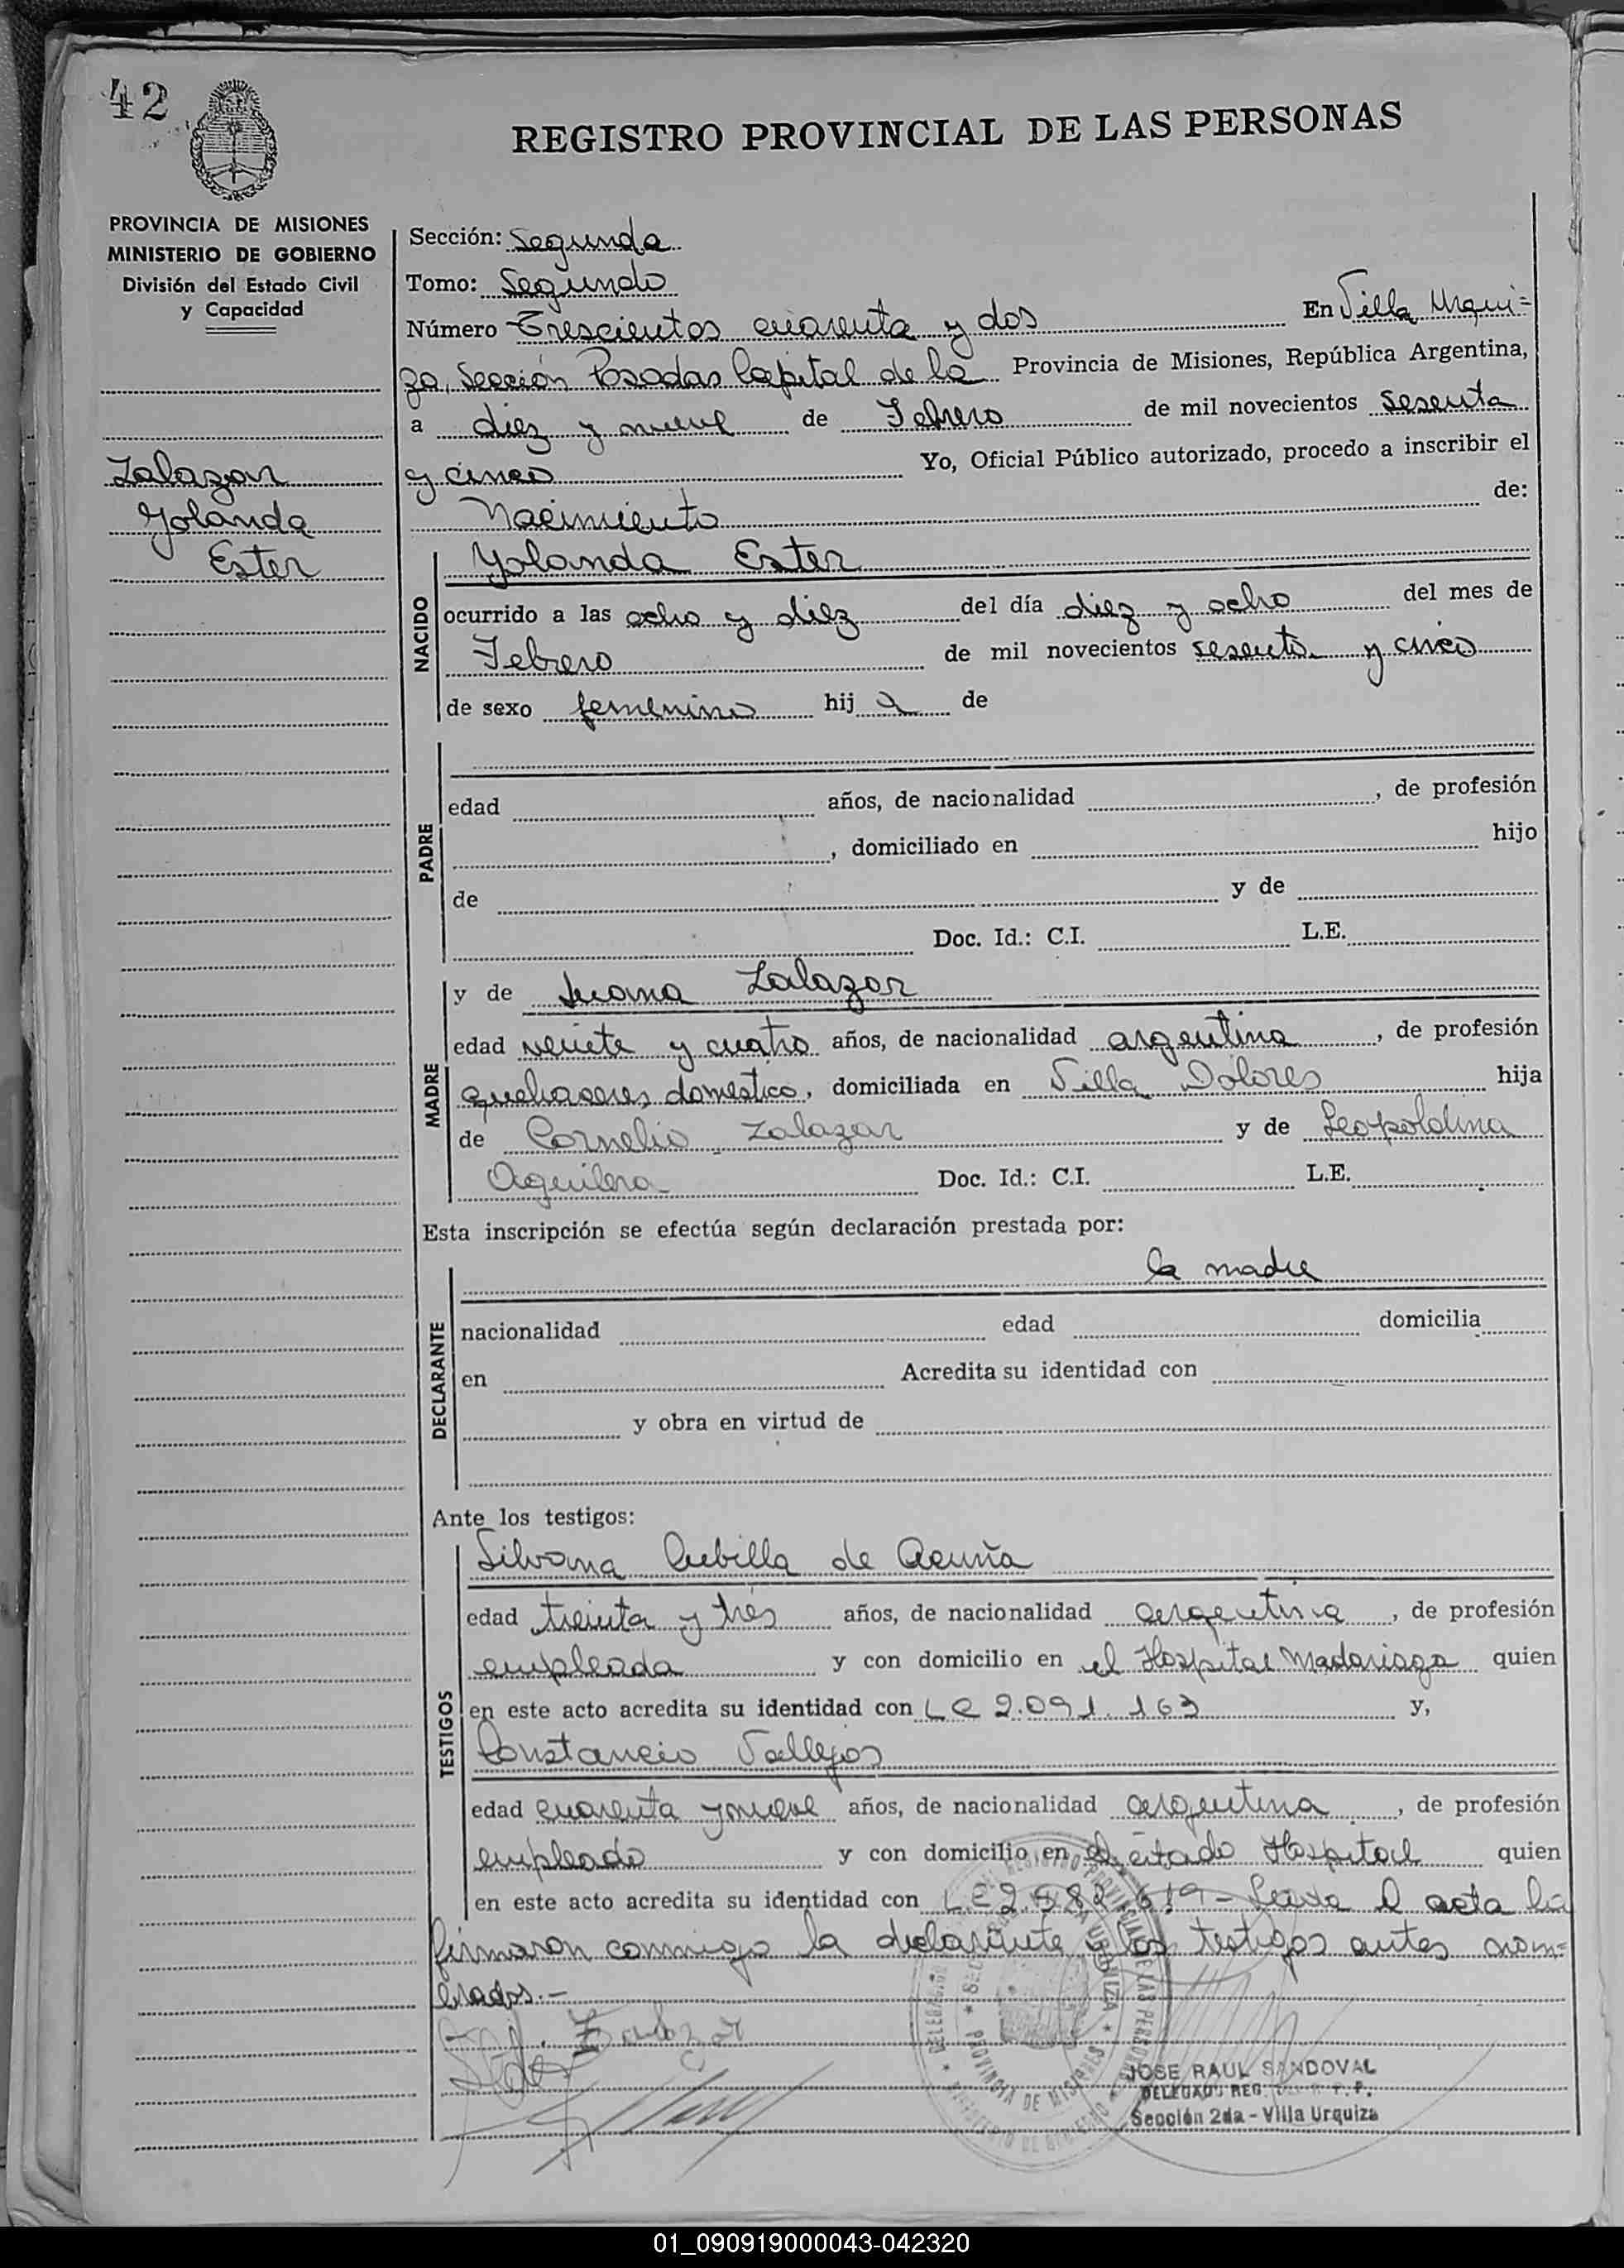 42
REGISTRO PROVINCIAL DE LAS PERSONAS
PROVINCIA DE MISIONES
MINISTERIO DE GOBIERNO
División del Estado Civil
y Capacidad
Zalazar
Yolanda
Ester
Sección: Segunda
Tomo: Segundo
Número Trescientos cuarenta y dos En Villa Urqui=
za, Sección Posadas Capital de la Provincia de Misiones, República Argentina,
a diez y nueve de Febrero de mil novecientos sesenta
y cinco Yo, Oficial Público autorizado, procedo a inscribir el
Nacimiento de:
NACIDO
Yolanda Ester
ocurrido a las ocho y diez del día diez y ocho del mes de
Febrero de mil novecientos sesenta y cinco
de sexo femenino hij a de
PADRE
edad años, de nacionalidad , de profesión
, domiciliado en hijo
de y de
Doc. Id.: C.I. L.E.
MADRE
y de Juana Zalazar
edad veinte y cuatro años, de nacionalidad argentina , de profesión
quehaseres domestico, domiciliada en Villa Dolores hija
de Cornelio Zalazar y de Leopoldina
Aguilera Doc. Id.: C.I. L.E.
Esta inscripción se efectúa según declaración prestada por:
la madre
DECLARANTE
nacionalidad edad domicilia
en Acredita su identidad con
y obra en virtud de
Ante los testigos:
TESTIGOS
Silvana Cubilla de Acuña
edad treinta y tres años, de nacionalidad argentina , de profesión
empleada y con domicilio en el Hospital Madariaga quien
en este acto acredita su identidad con LC 2.091.163 y,
Constancio Vallejos
edad cuarenta y nueve años, de nacionalidad argentina , de profesión
empleado y con domicilio en el citado Hospital quien
en este acto acredita su identidad con L.E. - Leida el acta la
firmaron conmigo la declarante y los testigos antes nom=
brados.-
JOSE RAUL SANDOVAL
DELEGADO REG. P.
Sección 2da - Villa Urquiza
01_090919000043-042320